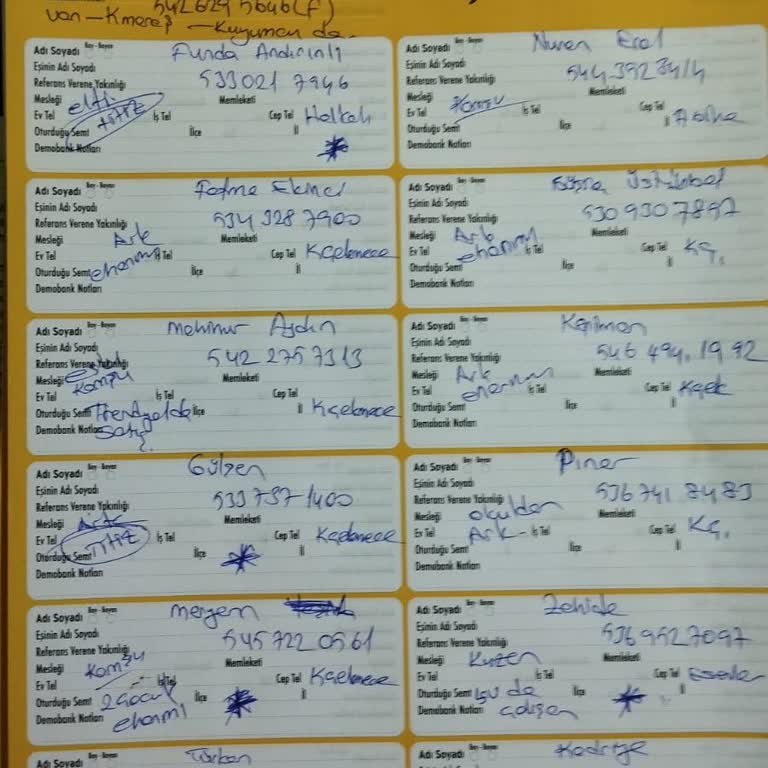 542 624 5646 (F)
van - Kmaraş - Kuyumcu da.
Adı Soyadı Bay - Bayan Funda Andırınlı
Eşinin Adı Soyadı
Referans Verene Yakınlığı 533 021 7946
Mesleği elti Memleketi
Ev Tel TİTİZ İş Tel Cep Tel Halkalı
Oturduğu Semt İlçe İl
Demobank Notları
Adı Soyadı Bay - Bayan Nuran Erol
Eşinin Adı Soyadı
Referans Verene Yakınlığı 544 3923414
Mesleği Memleketi
Ev Tel Komşu İş Tel Cep Tel
Oturduğu Semt İlçe İl
Demobank Notları
Adı Soyadı Bay - Bayan Fatma Ekinci
Eşinin Adı Soyadı
Referans Verene Yakınlığı 534 328 7900
Mesleği Ark Memleketi
Ev Tel İş Tel Cep Tel Kçekmece
Oturduğu Semt ehanımı İlçe İl
Demobank Notları
Adı Soyadı Bay - Bayan Büşra
Eşinin Adı Soyadı
Referans Verene Yakınlığı 530 930 7897
Mesleği Ark Memleketi
Ev Tel ehanımı İş Tel Cep Tel Kç.
Oturduğu Semt İlçe İl
Demobank Notları
Adı Soyadı Bay - Bayan Mehinur Aydın
Eşinin Adı Soyadı
Referans Verene Yakınlığı 542 275 7313
Mesleği Komşu Memleketi
Ev Tel İş Tel Cep Tel
Oturduğu Semt Trendyolda İlçe İl Kçekmece
Demobank Notları Satış
Adı Soyadı Bay - Bayan
Eşinin Adı Soyadı
Referans Verene Yakınlığı 546 494. 19 92
Mesleği Ark Memleketi
Ev Tel ehanımı İş Tel Cep Tel Kçek
Oturduğu Semt İlçe İl
Demobank Notları
Adı Soyadı Bay - Bayan Gülzen
Eşinin Adı Soyadı
Referans Verene Yakınlığı 533 737 1400
Mesleği Ark Memleketi
Ev Tel TİTİZ İş Tel Cep Tel Kçekmece
Oturduğu Semt İlçe İl
Demobank Notları
Adı Soyadı Bay - Bayan Pınar
Eşinin Adı Soyadı
Referans Verene Yakınlığı 536 741 8483
Mesleği okuldan Memleketi
Ev Tel Ark - İş Tel Cep Tel Kç.
Oturduğu Semt İlçe İl
Demobank Notları
Adı Soyadı Bay - Bayan Meryem
Eşinin Adı Soyadı
Referans Verene Yakınlığı 545 722 0561
Mesleği Komşu Memleketi
Ev Tel İş Tel Cep Tel Kçekmece
Oturduğu Semt 2 Çocuk İlçe İl
Demobank Notları ehanımı
Adı Soyadı Bay - Bayan Zahide
Eşinin Adı Soyadı
Referans Verene Yakınlığı 536 952 7097
Mesleği Kuzen Memleketi
Ev Tel İş Tel Cep Tel Esenler
Oturduğu Semt İlçe İl
Demobank Notları çalışan
Adı Soyadı Bay - Bayan Türkan
Adı Soyadı Bay - Bayan Kadriye